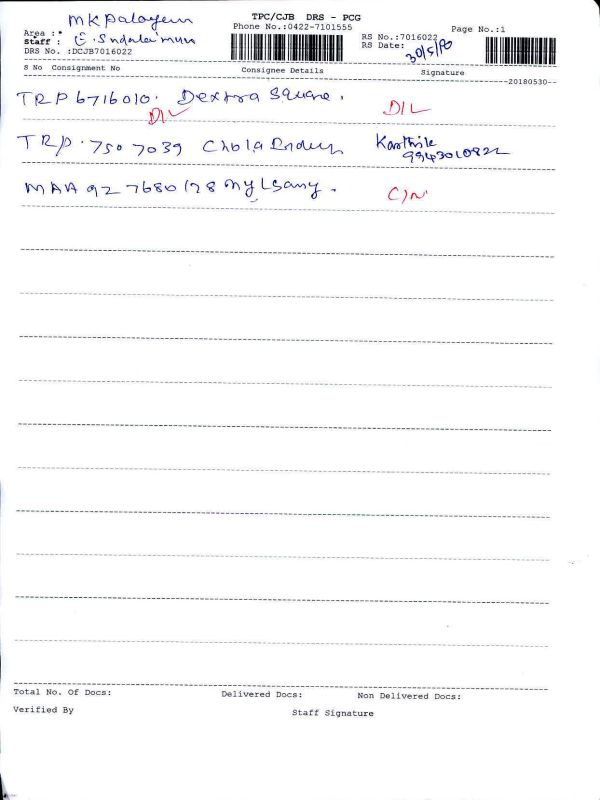 TPC/CJB DRS - PCG
MKpalayam
Phone No.:0422-7101555
Page No.:1
Area :*
RS No.:7016022
Staff : E.
RS Date: 30/5/
DRS No. :DCJB7016022
S No Consignment No Consignee Details Signature
--20180530--
TRP 6716010. Dextra Square. D/L
D/L
TRP. 7507039 Chola Karthik
9943010822
MAA 927680128
Total No. Of Docs: Delivered Docs: Non Delivered Docs:
Verified By Staff Signature